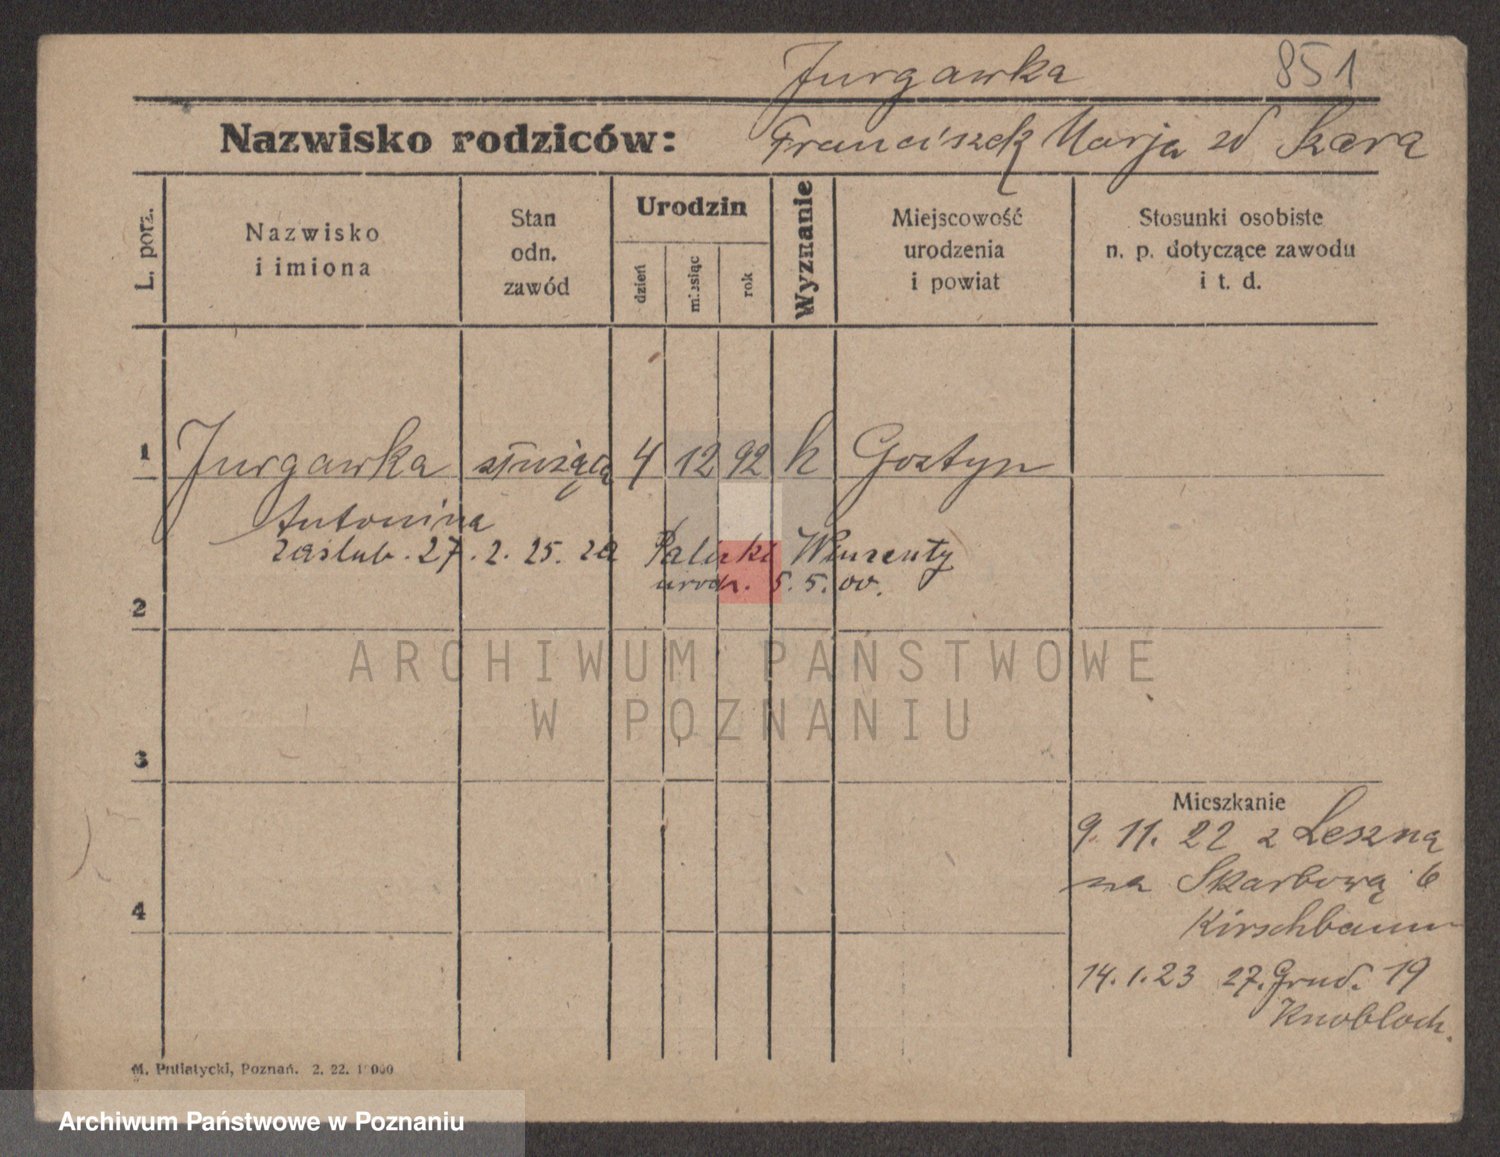 Jurgawka 851
Nazwisko rodziców: Franciszek Marja zd Szara
L. porz.
Nazwisko
i imiona
Stan
odn.
zawód
Urodzin
dzień
miesiąc
rok
Wyznanie
Miejscowość
urodzenia
i powiat
Stosunki osobiste
n. p. dotyczące zawodu
i t. d.
1 Jurgawka służąca 4 12 92 k Gostyn
Antonina
zaślub. 27. 2. 25. za Wincenty
urodz. 5. 5. 00.
2
ARCHIWUM PAŃSTWOWE
W POZNANIU
3
Mieszkanie
9. 11. 22 z Leszna
na Skarbową 6
4
Kirschbaum
14. 1. 23 27. Grud. 19
Knobloch.
M. Putiatycki, Poznań. 2. 22.
Archiwum Państwowe w Poznaniu